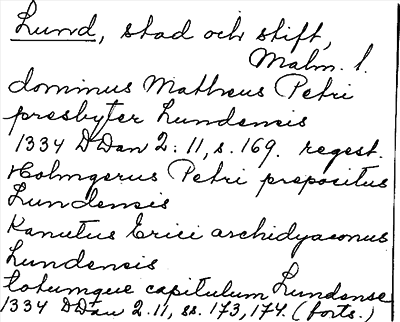 Lund, stad och stift,
Malm. l.
dominus Matheus Petri
presbyter Lundensis
1334 DDan 2:11, s. 169. regest.
Holmgerus Petri prepositus
Lundensis
Kanutus Erici archidyaconus
Lundensis
totumque capitulum Lundense
1334 DDan 2.11, ss. 173, 174. (forts.)